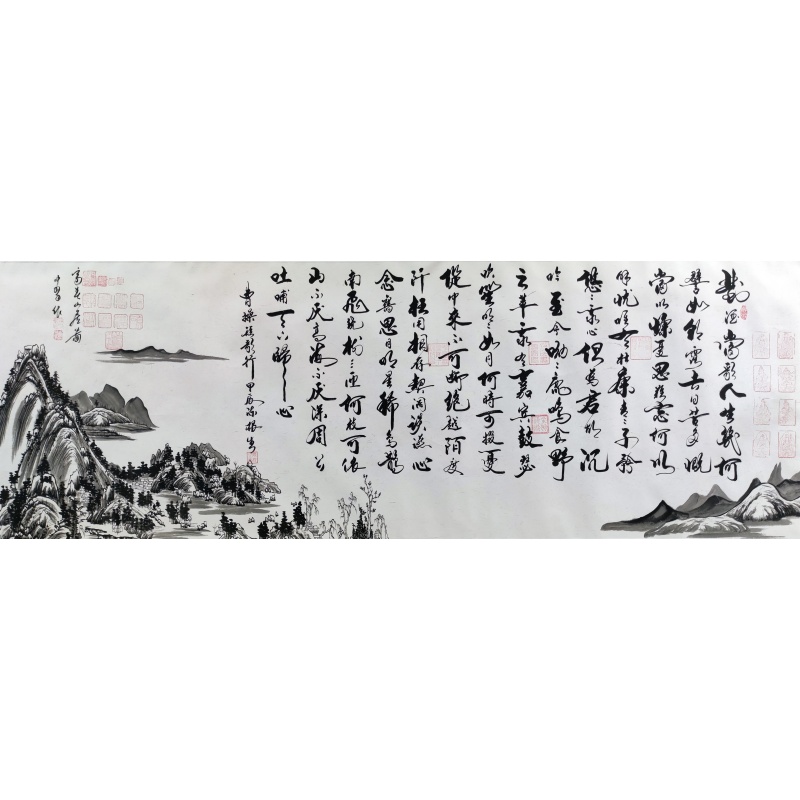 對酒當歌人生幾何
譬如朝露去日苦多慨
當以慷憂思難忘何以
解忧唯有杜康青々子衿
悠々我心但為君故沉
吟至今呦々鹿鳴食野
之苹我有嘉賓鼓瑟
吹笙明々如月何時可掇憂
從中來不可斷絕越陌度
阡枉用相存契闊談讌心
念舊恩月明星稀烏鵲
南飛繞樹三匝何枝可依
山不厭高海不厭深周公
吐哺天下歸心
曹操短歌行 甲辰
山居圖